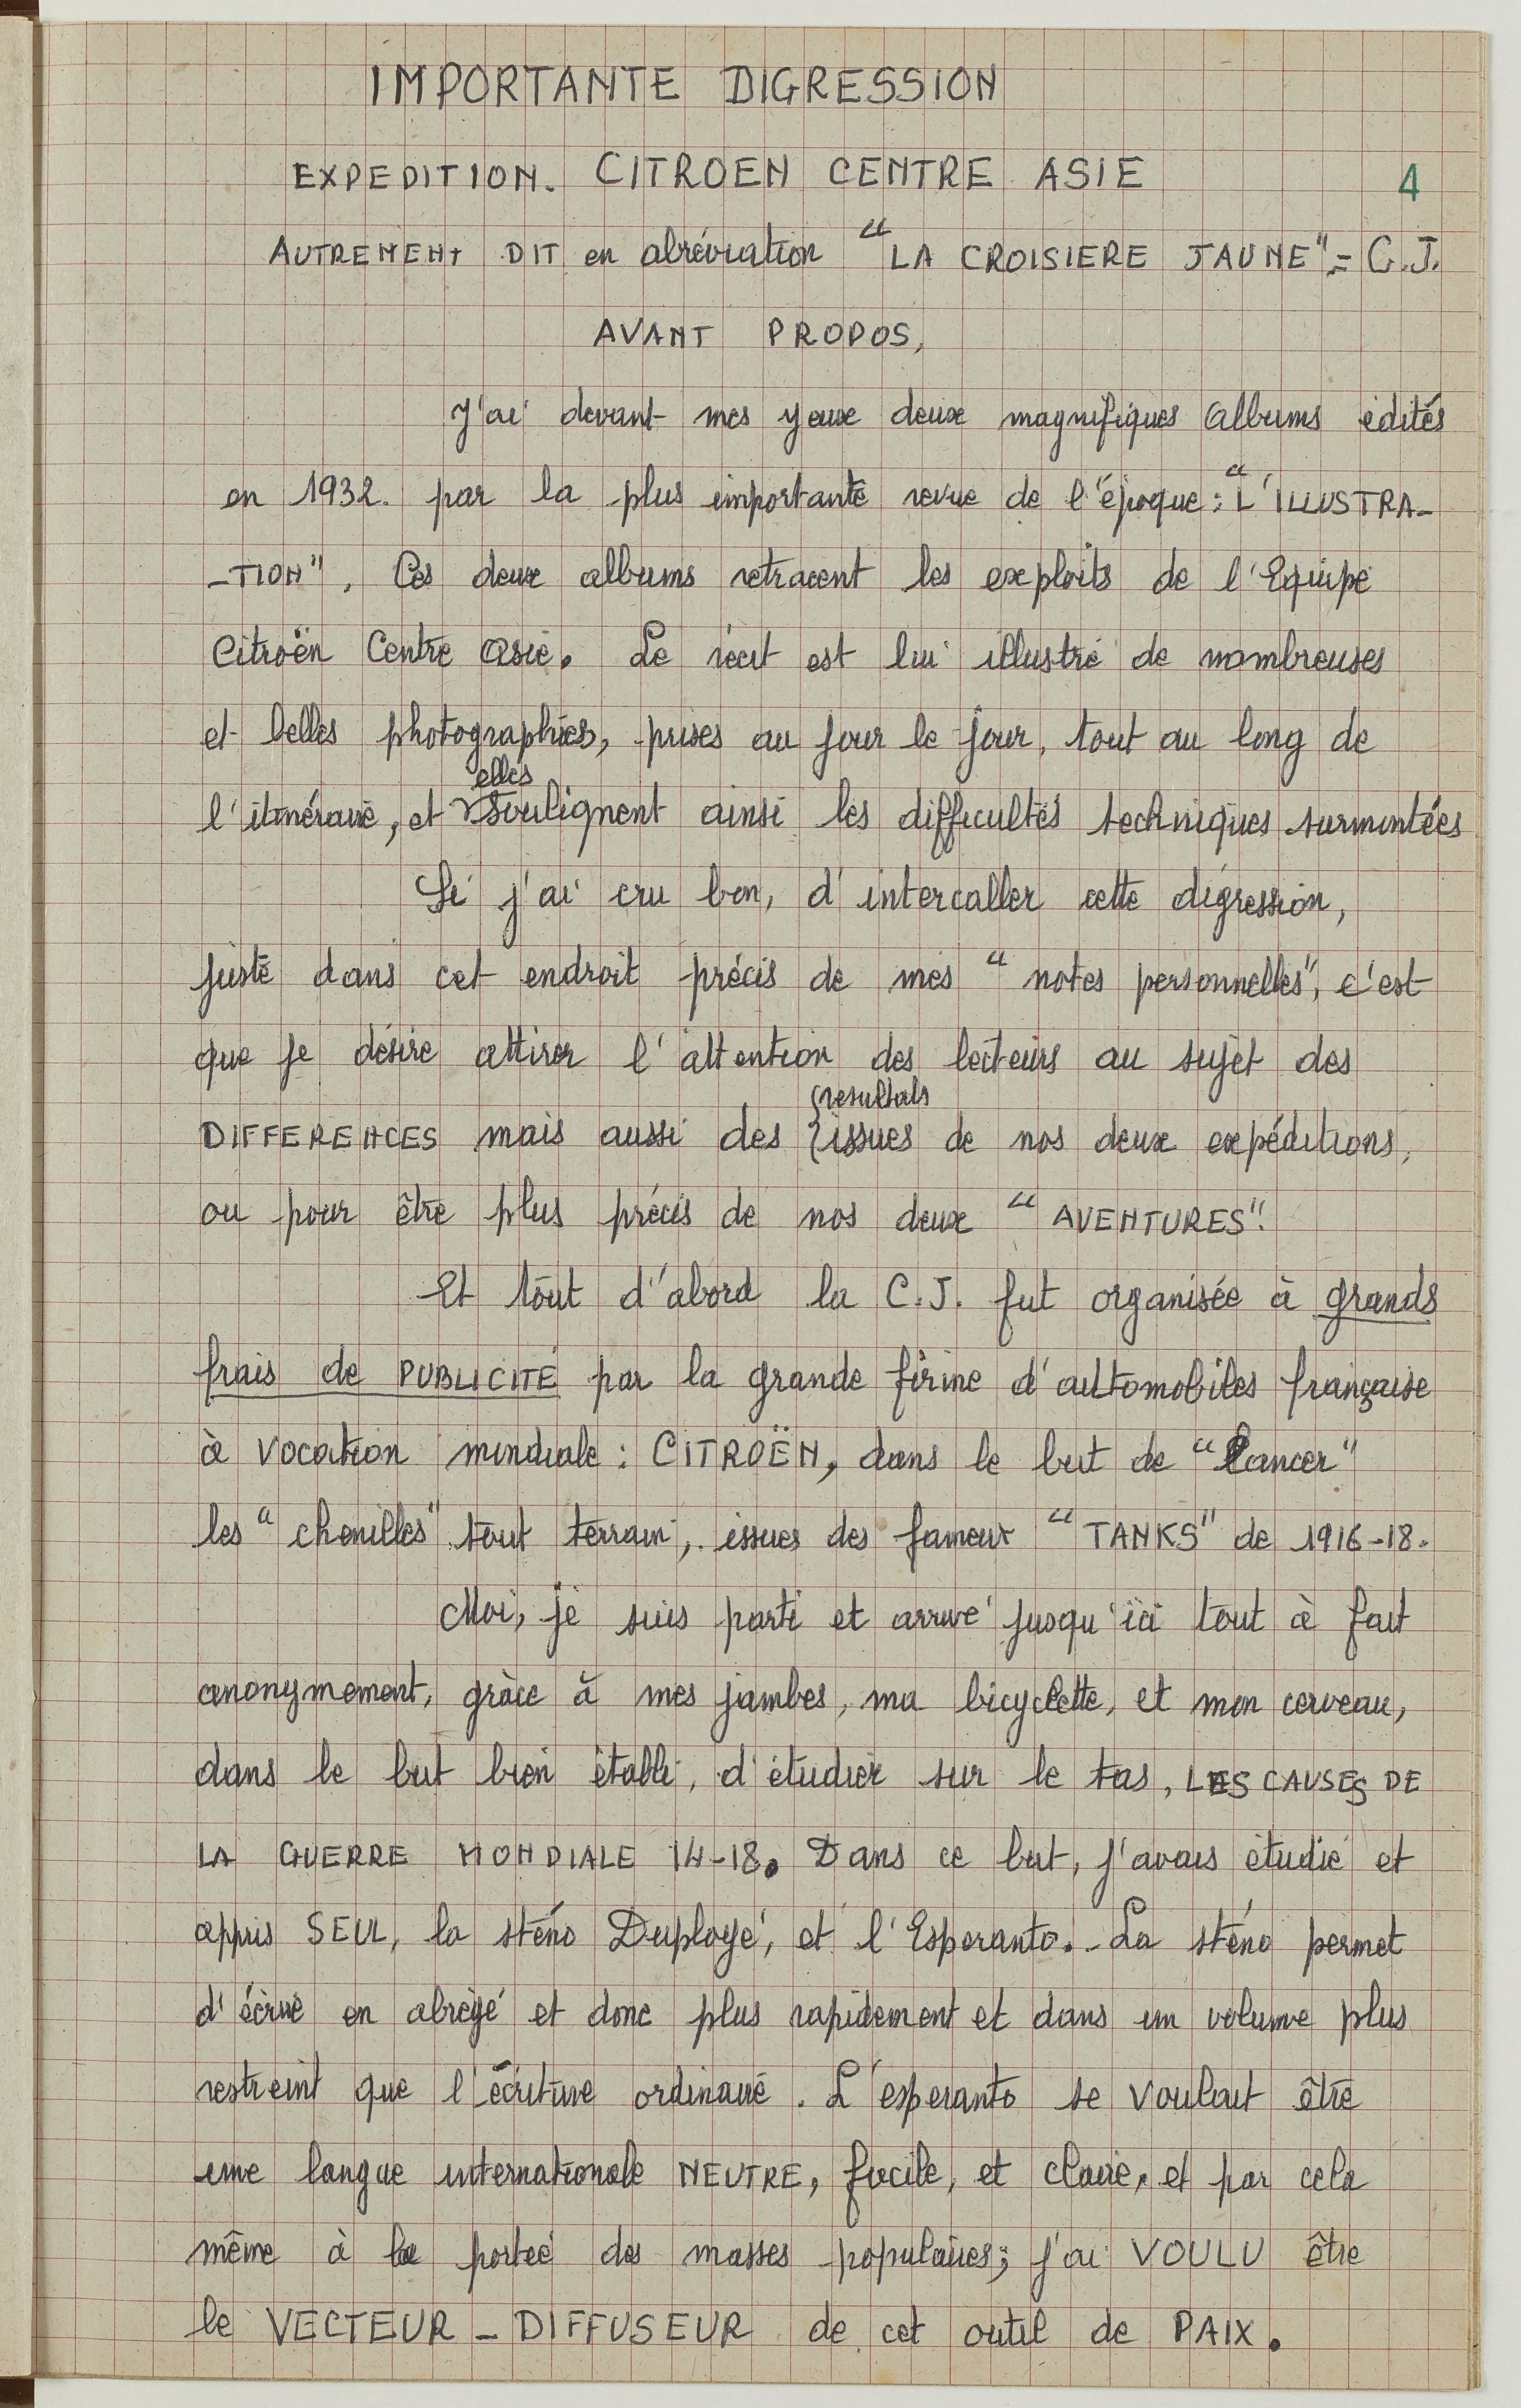 IMPORTANTE DIGRESSION
EXPEDITION. CITROEN CENTRE ASIE
4
AUTREMENT DIT en abréviation "LA CROISIERE JAUNE" = C.J.
AVANT PROPOS,
J'ai devant mes yeux deux magnifiques albums édités
en 1932. par la plus importante revue de l'époque : "L'ILLUSTRA-
-TION". Ces deux albums retracent les exploits de l'Equipe
Citroën Centre Asie. Le récit est lui illustré de nombreuses
et belles photographies, prises au jour le jour, tout au long de
elles
l'itinéraire, et soulignent ainsi les difficultés techniques surmontées
Si j'ai cru bon, d'intercaller cette digression,
juste dans cet endroit précis de mes "notes personnelles", c'est
que je désire attirer l'attention des lecteurs au sujet des
(resultats
DIFFERENCES mais aussi des {issues de nos deux expéditions,
ou pour être plus précis de nos deux "AVENTURES".
Et tout d'abord la C.J. fut organisée à grands
frais de PUBLICITÉ par la grande firme d'automobiles française
à vocation mondiale : CITROËN, dans le but de "Lancer"
les "chenilles" tout terrain, issues des fameux "TANKS" de 1916-18.
Moi, je suis parti et arrivé jusqu'ici tout à fait
anonymement, grâce à mes jambes, ma bicyclette, et mon cerveau,
dans le but bien établi, d'étudier sur le tas, LES CAUSES DE
LA GUERRE MONDIALE 14-18. Dans ce but, j'avais étudié et
appris SEUL, la sténo Duployé, et l'Esperanto. La sténo permet
d'écrire en abrégé et donc plus rapidement et dans un volume plus
restreint que l'écriture ordinaire. L'esperanto se voulait être
une langue internationale NEUTRE, facile, et claire, et par cela
même à la portée des masses populaires; j'ai VOULU être
le VECTEUR - DIFFUSEUR de cet outil de PAIX.